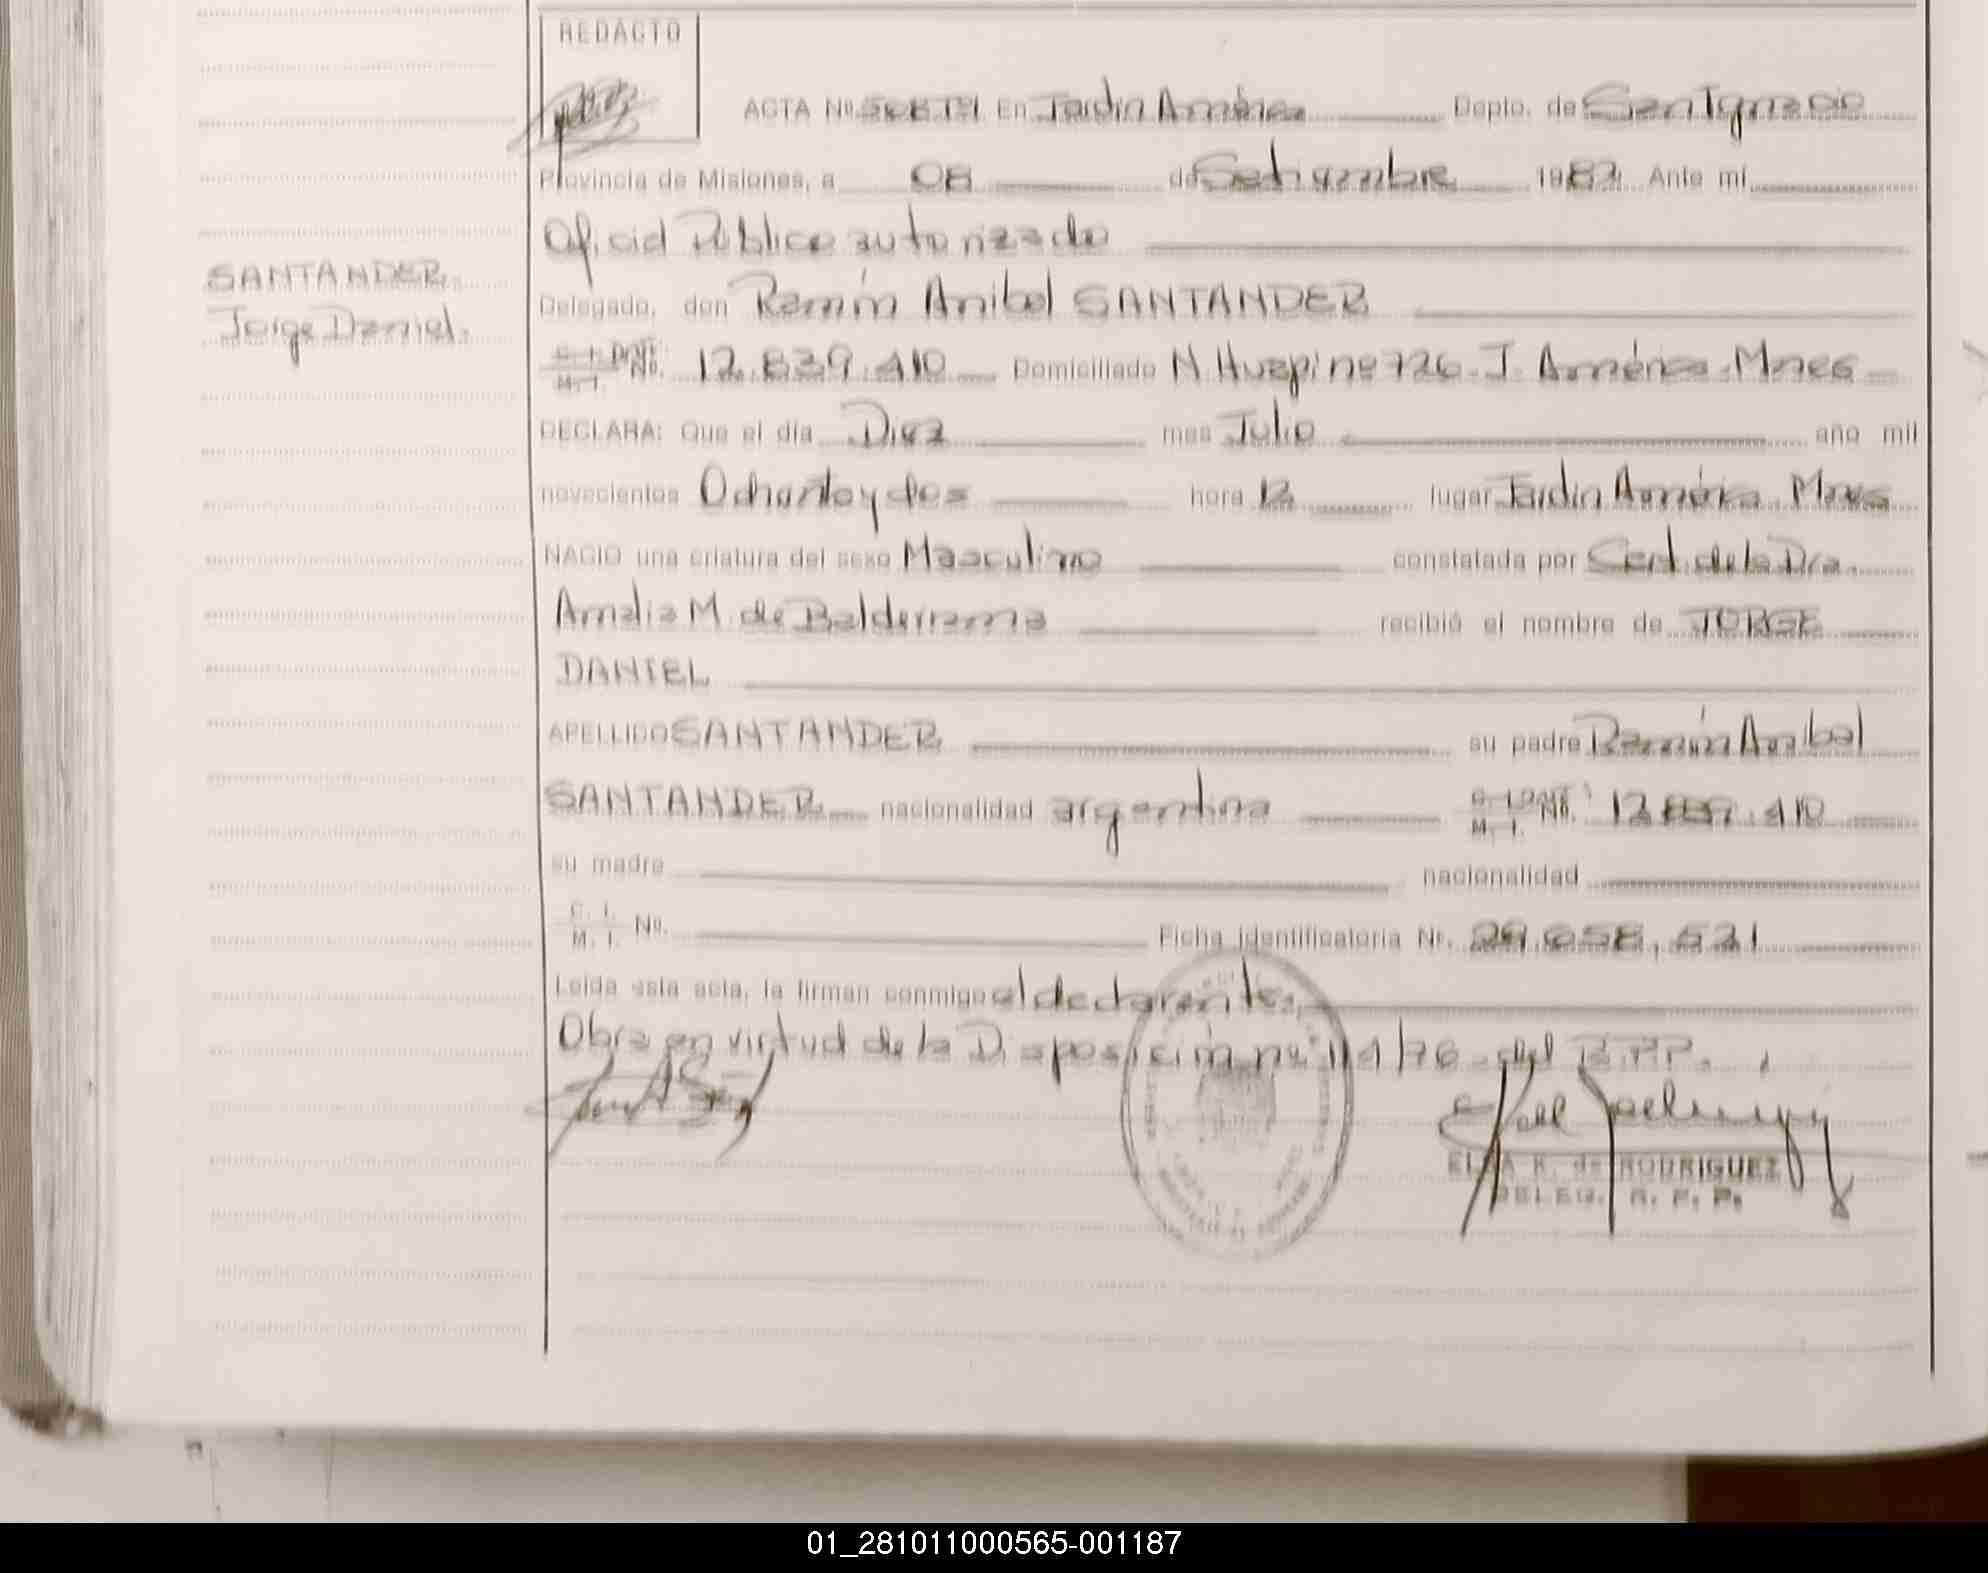 REDACTO
ACTA Nº En Jardín América Depto. de San Ignacio
Provincia de Misiones, a 08 de Setiembre 1982 Ante mí
Oficial Público autorizado
SANTANDER
Jorge Daniel.
Delegado, don Ramón Anibal SANTANDER
C. I. DNI M. I. Nº. 12.839.410 Domiciliado N. Huapi nº 726. J. América. Mnes
DECLARA: Que el día Diez mes Julio año mil
novecientos Ochenta y dos hora 12 lugar Jardín América. Mnes
NACIO una criatura del sexo Masculino constatada por Cert. de la Dra.
Amalia M. de Balderrama recibió el nombre de JORGE
DANIEL
APELLIDO SANTANDER su padre Ramón Anibal
SANTANDER nacionalidad argentina C. I. DNI M. I. Nº. 12.839.410
su madre nacionalidad
C. I. M. I. Nº. Ficha identificatoria Nº. 29.058.521
Leída esta acta, la firman conmigo el declarante,
Obra en virtud de la Disposición nº 114/76 del R.P.P.
ELSA R. de RODRIGUEZ
DELEG. R. P. P.
01_281011000565-001187